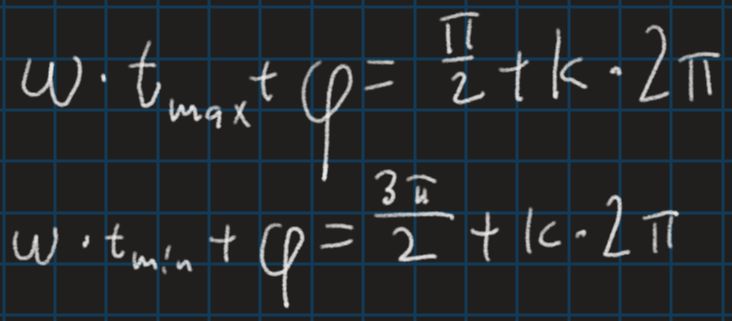 w · t_max + φ = π/2 + k · 2π
w · t_min + φ = 3π/2 + k · 2π